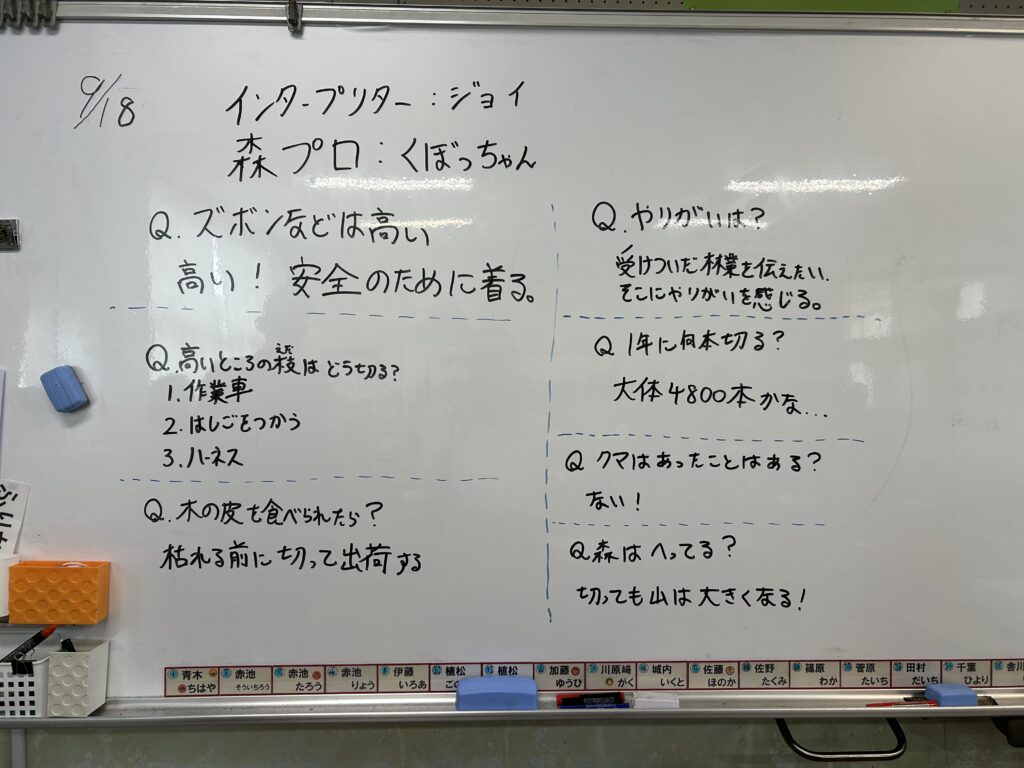 9/18
インタープリター：ジョイ
森プロ：くぼっちゃん
Q. ズボンなどは高い
高い！ 安全のために着る。
Q. 高いところの枝はどう切る？
えだ
1. 作業車
2. はしごをつかう
3. ハーネス
Q. 木の皮を食べられたら？
枯れる前に切って出荷する
Q. やりがいは？
受けついだ林業を伝えたい。
そこにやりがいを感じる。
Q 1年に何本切る？
大体4800本かな...
Q クマはあったことはある？
ない！
Q. 森はへってる？
切っても山は大きくなる！
青木 ちはや
赤池 そういちろう
赤池 たろう
赤池 りょう
伊藤 いろあ
植松
植松
加藤 ゆうひ
川原﨑 がく
城内 いくと
佐藤 ほのか
佐野 たくみ
篠原 わか
菅原 たいち
田村 だいち
千葉 ひより